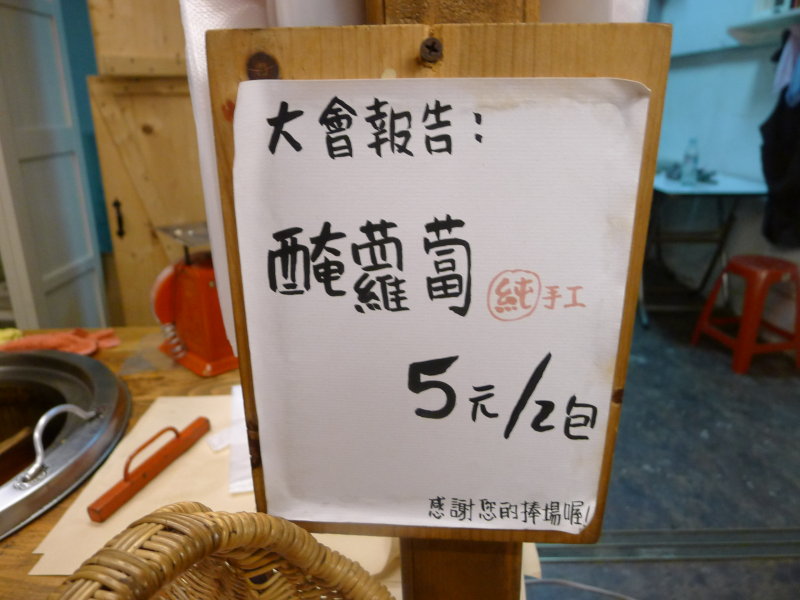 大會報告：
醃蘿蔔 純手工
5元/2包
感謝您的捧場喔！